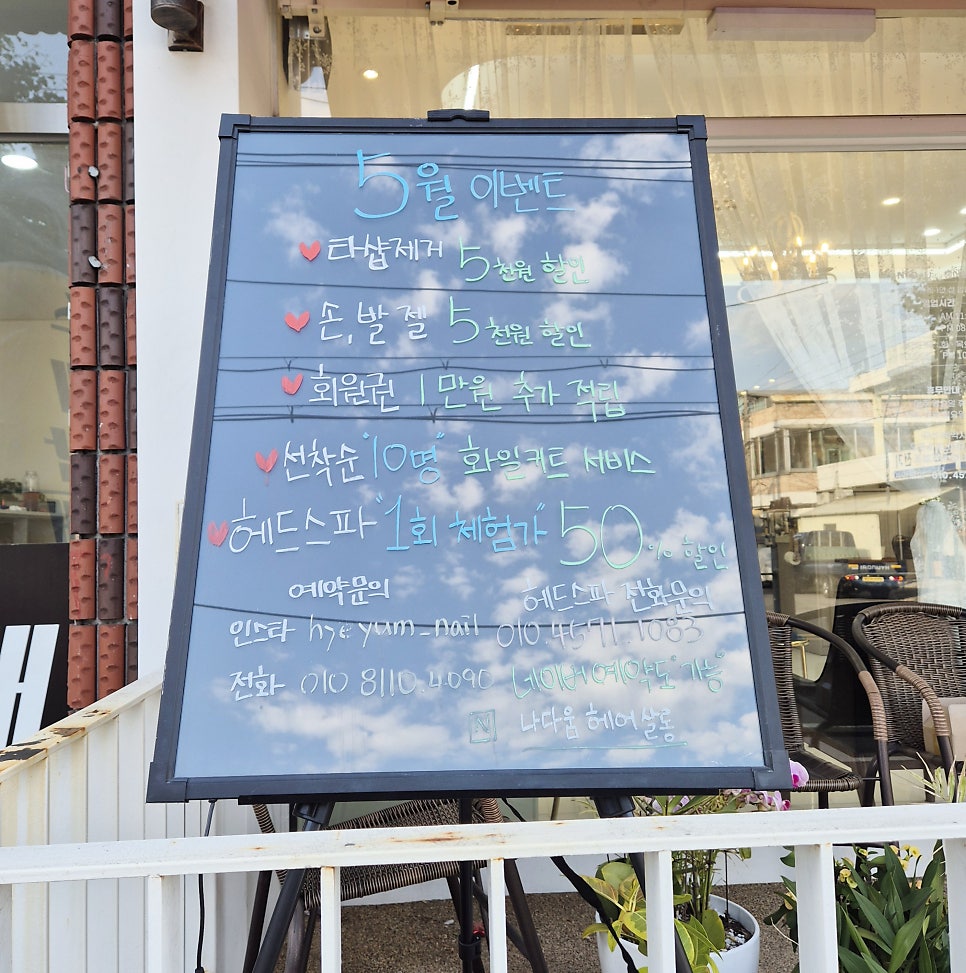 5월 이벤트
타샵제거 5천원 할인
손,발 젤 5천원 할인
회원권 1만원 추가 적립
선착순 "10명" 화일커트 서비스
헤드스파 "1회 체험가" 50% 할인
예약문의
헤드스파 전화문의
인스타 hyeyum_nail 010 4571_1083
전화 010 8110.4090 네이버예약도"가능"
N 나다움 헤어살롱